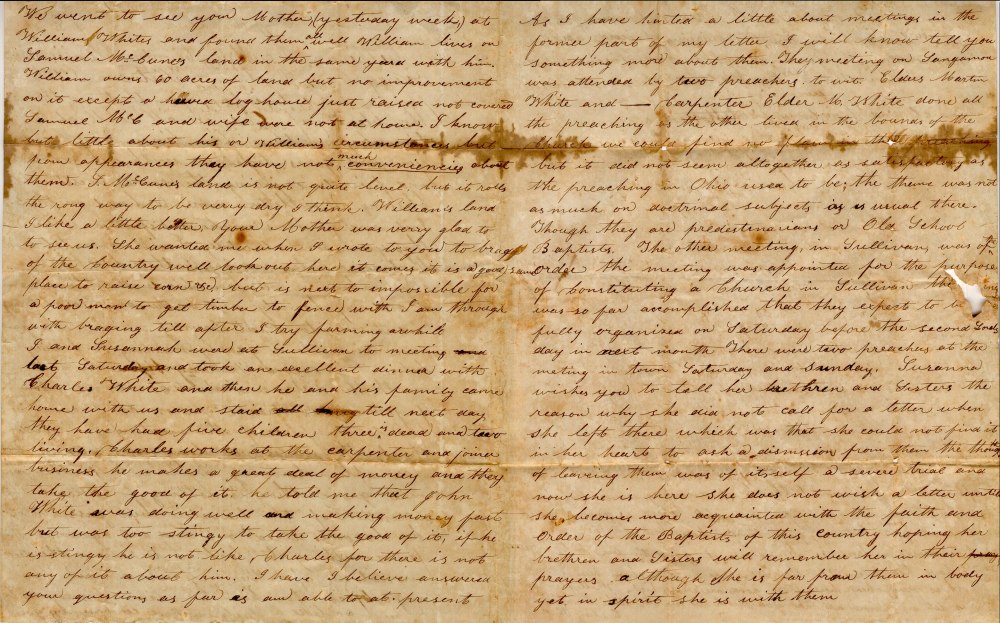 We went to see your Mother, (yesterday week,) at
William Whites and found them all well William lives on
Samuel McCunes' land in the same yard with him.
William owns 60 acres of land but no improvement
on it except a hewed log house just raised not covered
Samuel McC and wife were not at home. I know
but little about his or Williams circumstances but
from appearances they have not much conveniencies about
them. S. McCunes land is not quite level, but it rolls
the rong way to be verry dry I think. William's land
I like a little better your Mother was verry glad to
to see us. She wanted me when I wrote to you to brag
of the Country well look out here it comes it is a good
place to raise corn &c, but is next to impossible for
a poor man to get timber to fence with I am through
with braging till after I try farming awhile
I and Susannah were at Sullivan to meeting and
last Saturday and took an exellent dinner with
Charles White and then he and his family came
home with us and staid all till next day
they have had five children three dead and two
living, Charles works at the carpenter and joiner
business he makes a great deal of money and they
take the good of it. he told me that John
White was doing well and making money fast
but was too stingy to take the good of it, if he
is stingy he is not like Charles for there is not
any of it about him. I have I believe answered
your questions as far as am able to at present
As I have hinted a little about meetings in the
former part of my letter I will know tell you
something more about them. They meeting on Sangamon
was attended by two preachers to wit Elders Martin
White and — Carpenter Elder M. White done all
the preaching as the other lived in the bounds of the
church we could find no flaw in the preaching
but it did not seem altogether as satisfactory as
the preaching in Ohio used to be, the theme was not
as much on doctrinal subjects as is usual there.
Though they are predestinarians or Old School
Baptists. The other meeting, in Sullivan, was of
same Order the meeting was appointed for the purpose
of Constituting a Church in Sullivan the
was so far accomplished that they expect to be
fully organised on Saturday before the second Sunday
day in next month There were two preachers at the
meting in town Saturday and Sunday. Susanna
wishes you to tell her brethren and Sisters the
reason why she did not call for a letter when
she left there which was that she could not find it
in her heart to ask a dismission from them the thought
of leaving them was of itself a severe trial and
now she is here she does not wish a letter until
she becomes more acquainted with the faith and
Order of the Baptists of this country hoping her
brethren and Sisters will remember her in their pray
prayers although she is far from them in body
yet in spirit she is with them